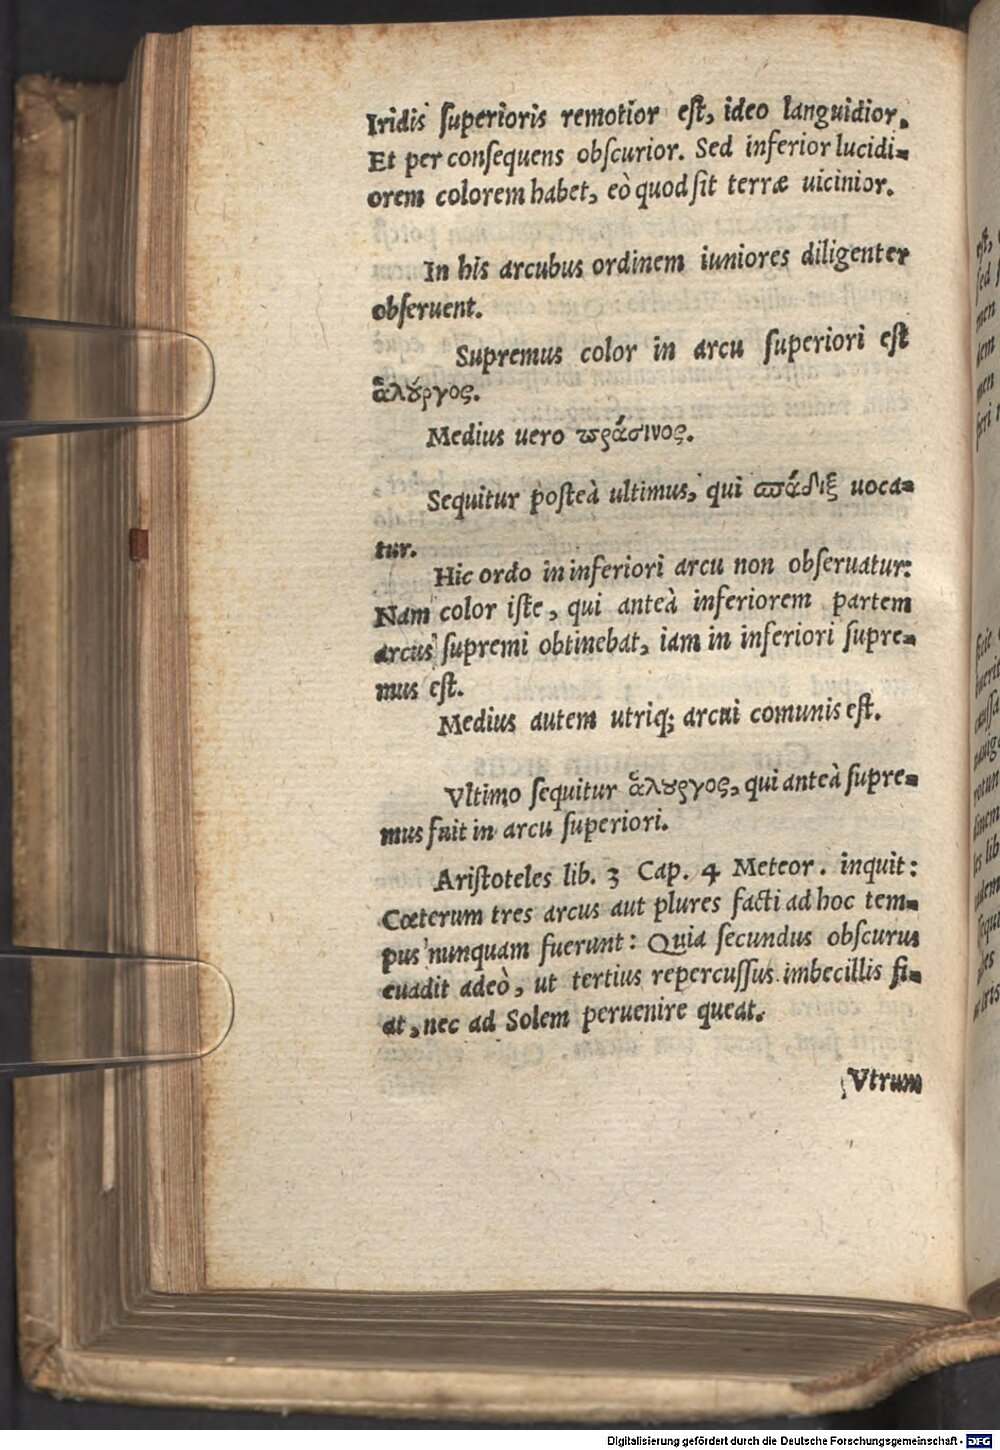 Iridis ſuperioris remotior eſt, ideo languidior.
Et per conſequens obſcurior. Sed inferior lucidi=
orem colorem habet, eò quod ſit terræ uicinior.
In his arcubus ordinem iuniores diligenter
obſeruent.
Supremus color in arcu ſuperiori eſt
ἅλȣργος.
Medius uero ϖράσινος.
Sequitur poſteà ultimus, qui ϖάδιξ uoca=
tur.
Hic ordo in inferiori arcu non obſeruatur:
Nam color iſte, qui anteà inferiorem partem
arcus ſupremi obtinebat, iam in inferiori ſupre=
mus eſt.
Medius autem utriq; arcui comunis eſt.
Vltimo ſequitur ἅλȣργος, qui anteà ſupre=
mus fuit in arcu ſuperiori.
Ariſtoteles lib. 3 Cap. 4 Meteor. inquit:
Cœterum tres arcus aut plures facti ad hoc tem=
pus nunquam fuerunt: Quia ſecundus obſcurus
euadit adeò, ut tertius repercuſſus imbecillis fi=
at, nec ad Solem peruenire queat.
Vtrum
eſt,
ſed
men
dem
men
feri
Digitalisierung gefördert durch die Deutsche Forschungsgemeinschaft - DFG